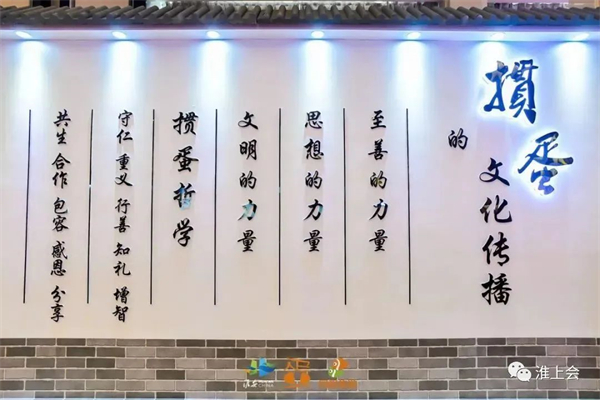 掼蛋
的
文化传播
至善的力量
思想的力量
文明的力量
掼蛋哲学
守仁 重义 行善 知礼 增智
共生 合作 包容 感恩 分享
淮安
淮上会